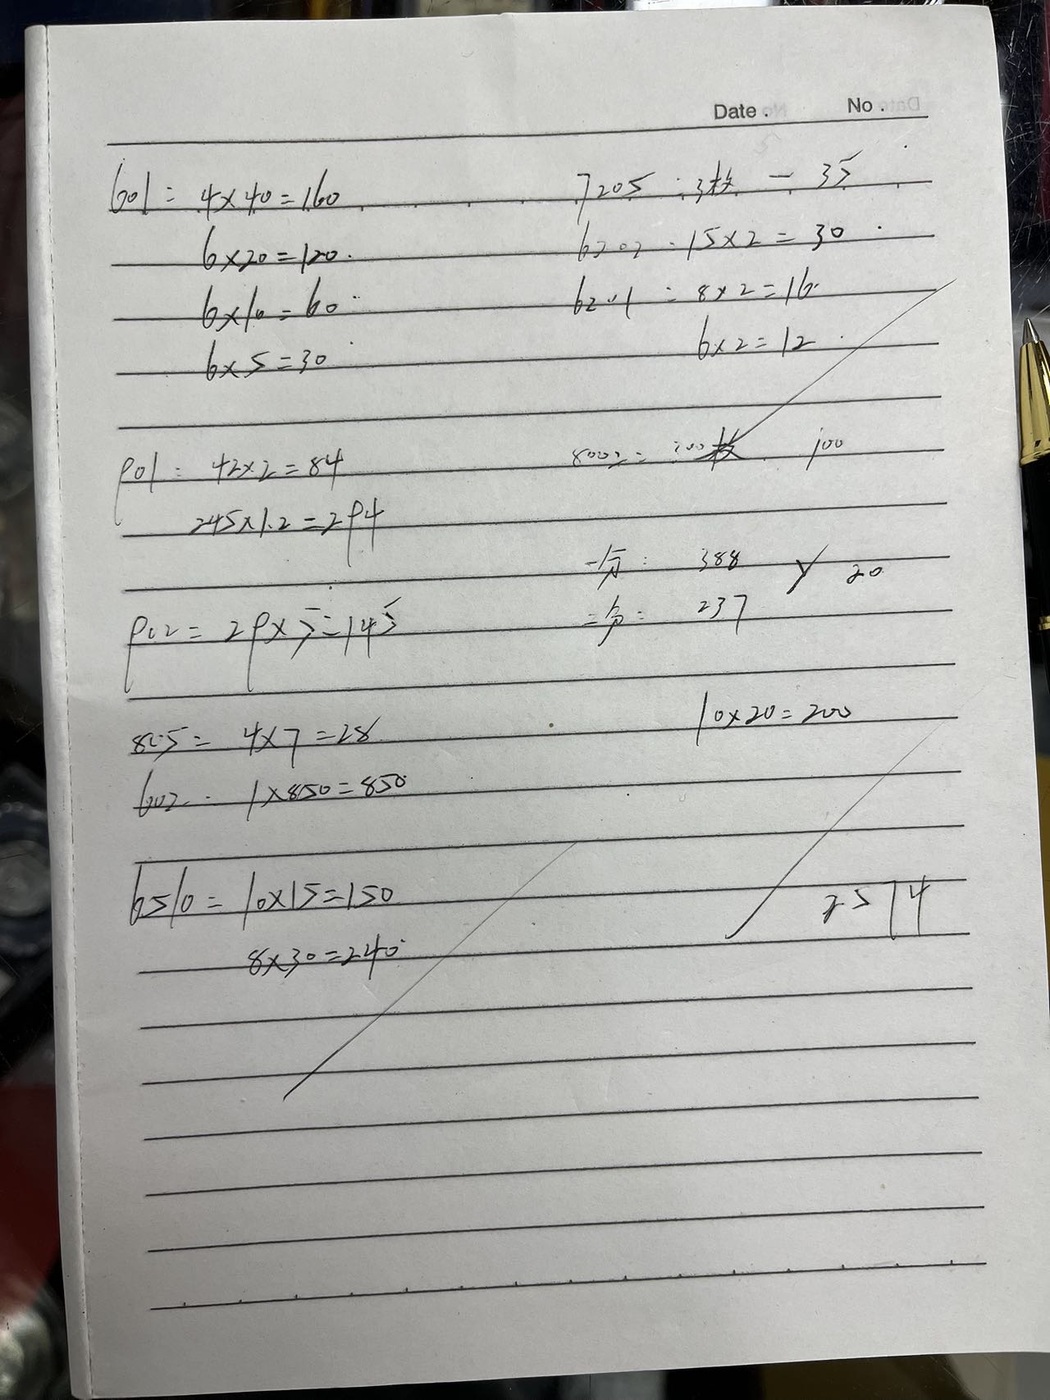 Date . No .
601 = 4×40=160
6×20=120.
6×10=60
6×5=30
901 = 42×2=84
245×1.2=294
902 = 29×5=145
805 = 4×7=28
602 1×850=850
6510 = 10×15=150
8×30=240
7205 : 3枚 — 35
6202 15×2=30
6201 = 8×2=16
6×2=12
8002 = 100枚 100
一分: 388 20
二分: 237
10×20=200
2574